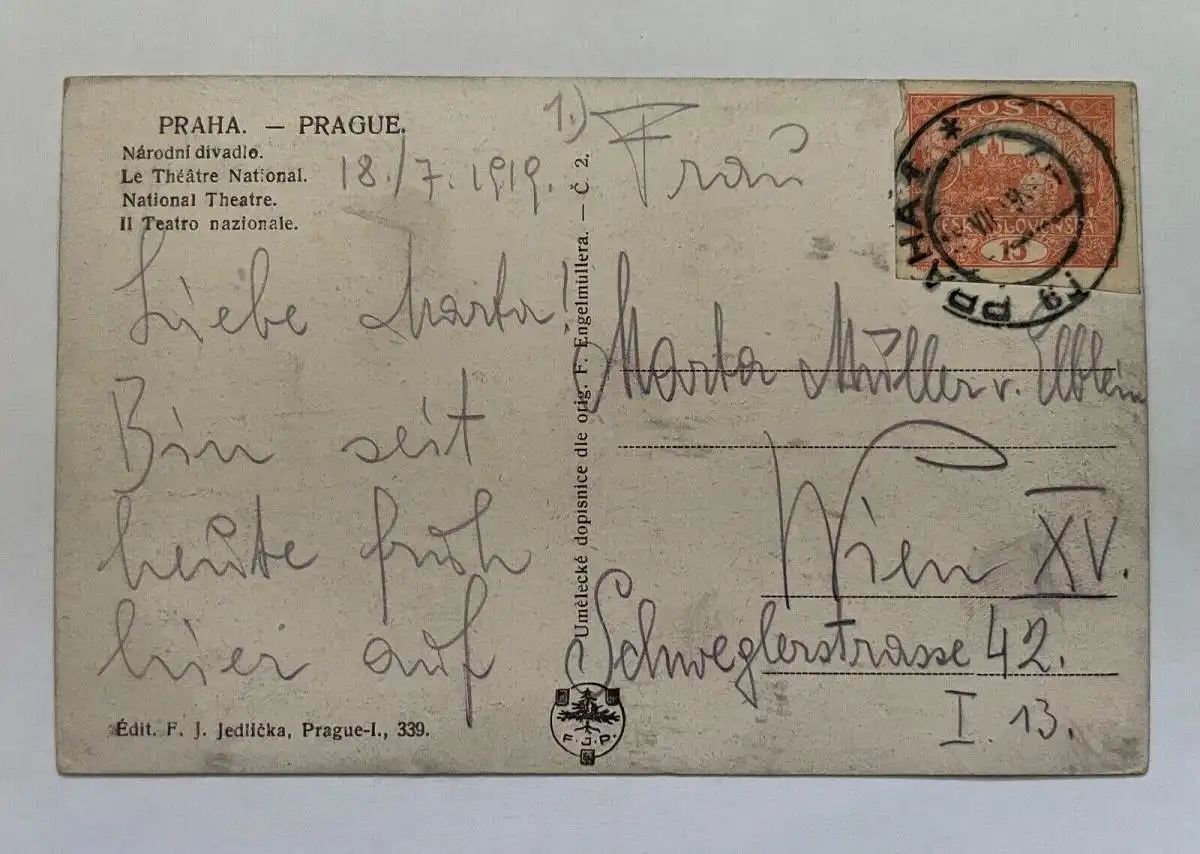 PRAHA. — PRAGUE.
Národní divadlo.
Le Théâtre National.
National Theatre.
Il Teatro nazionale.
18./7. 1919.
Liebe Marta!
Bin seit
heute früh
hier auf
Édit. F. J. Jedlička, Prague-I., 339.
Umělecké dopisnice dle orig. F. Engelmüllera. — Č. 2.
F. J. P.
1.)
Frau
Marta Müller v.
Wien XV.
Schweglerstrasse 42.
I. 13.
POŠTA
ČESKOSLOVENSKÁ
15
PRAHA 1 * PRAG 1
VII 19